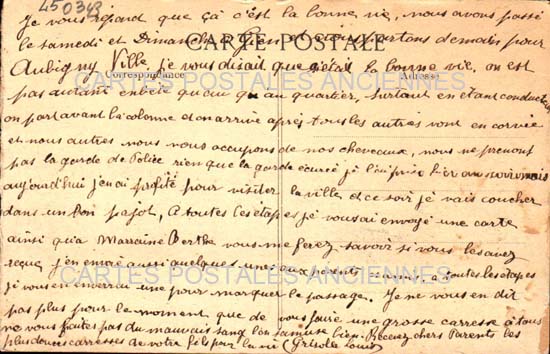 450343
Je vous répond que çà c'est la bonne vie, nous avons passé
le samedi et Dimanche à Gien et nous partons demain pour
CARTE POSTALE
Aubigny Ville, je vous disait que c'était la bonne vie, on est
Correspondance
Adresse
pas autant embêté qu'au quartier, surtout en étant conducteur
on part avant la colonne et on arrive après tous les autres vont en corvée
et nous autres nous nous occupons de nos chevaux, nous ne prenont
pas la garde de Police rien que la garde écurie je l'ai prise hier au soir mais
aujourd'hui j'en ai profité pour visiter la ville et ce soir je vais coucher
dans un bon pajot, A toutes les étapes je vous ai envoyé une carte
ainsi qu'a Marraine Berthe vous me ferez savoir si vous les avez
reçue, j'en envoie aussi quelques unes aux parents, a toutes les étapes
CARTES POSTALES ANCIENNES
je vous en enverrai une pour marquer le passage. Je ne vous en dit
pas plus pour le moment que de vous faire une grosse caresse à tous
ne vous faites pas du mauvais sang l'on s'amuse bien. Recevez chers Parents les
plus douces caresses de votre fils pour la vie (Grisolle Louis)